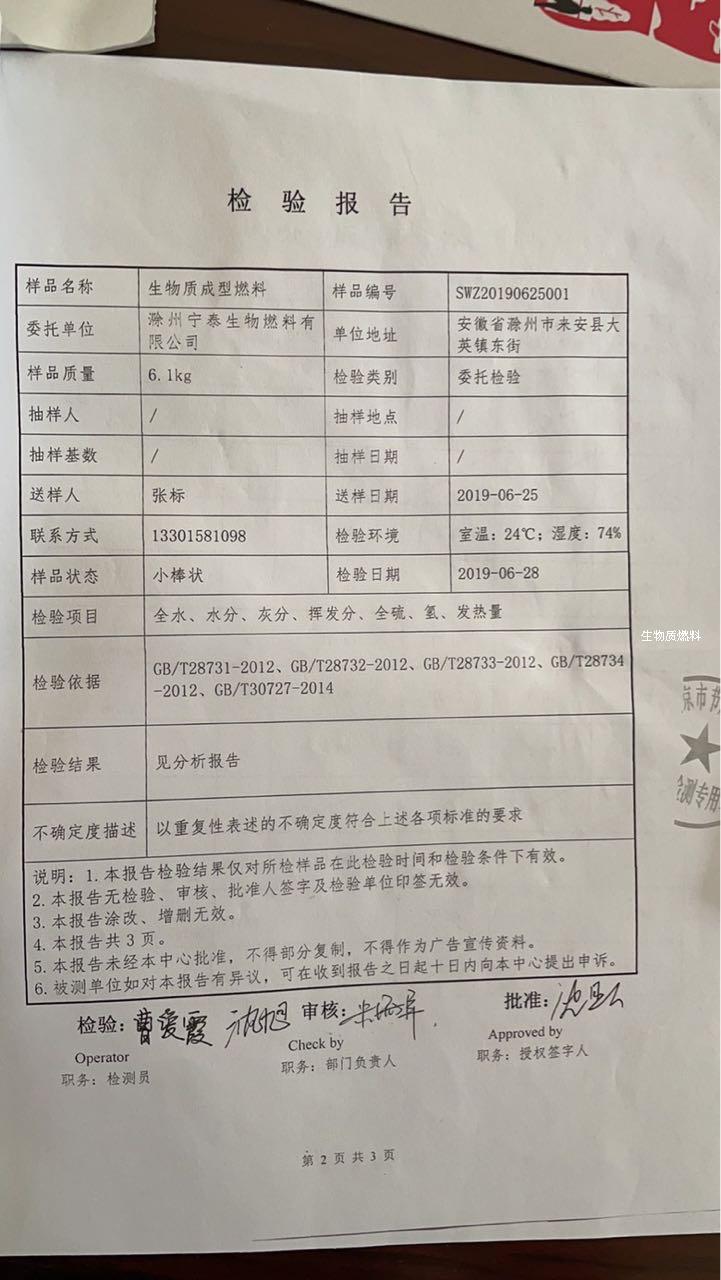 检 验 报 告
样品名称 生物质成型燃料 样品编号 SWZ20190625001
委托单位 滁州宁泰生物燃料有 单位地址 安徽省滁州市来安县大
限公司 英镇东街
样品质量 6.1kg 检验类别 委托检验
抽样人 / 抽样地点 /
抽样基数 / 抽样日期 /
送样人 张标 送样日期 2019-06-25
联系方式 13301581098 检验环境 室温：24℃；湿度：74%
样品状态 小棒状 检验日期 2019-06-28
检验项目 全水、水分、灰分、挥发分、全硫、氢、发热量
生物质燃料
检验依据 GB/T28731-2012、GB/T28732-2012、GB/T28733-2012、GB/T28734
-2012、GB/T30727-2014
京市
检验结果 见分析报告
检测专用
不确定度描述 以重复性表述的不确定度符合上述各项标准的要求
说明：1. 本报告检验结果仅对所检样品在此检验时间和检验条件下有效。
2. 本报告无检验、审核、批准人签字及检验单位印签无效。
3. 本报告涂改、增删无效。
4. 本报告共 3 页。
5. 本报告未经本中心批准，不得部分复制，不得作为广告宣传资料。
6. 被测单位如对本报告有异议，可在收到报告之日起十日内向本中心提出申诉。
检验：曹爱霞 审核： 批准：
Operator Check by Approved by
职务：检测员 职务：部门负责人 职务：授权签字人
第 2 页 共 3 页